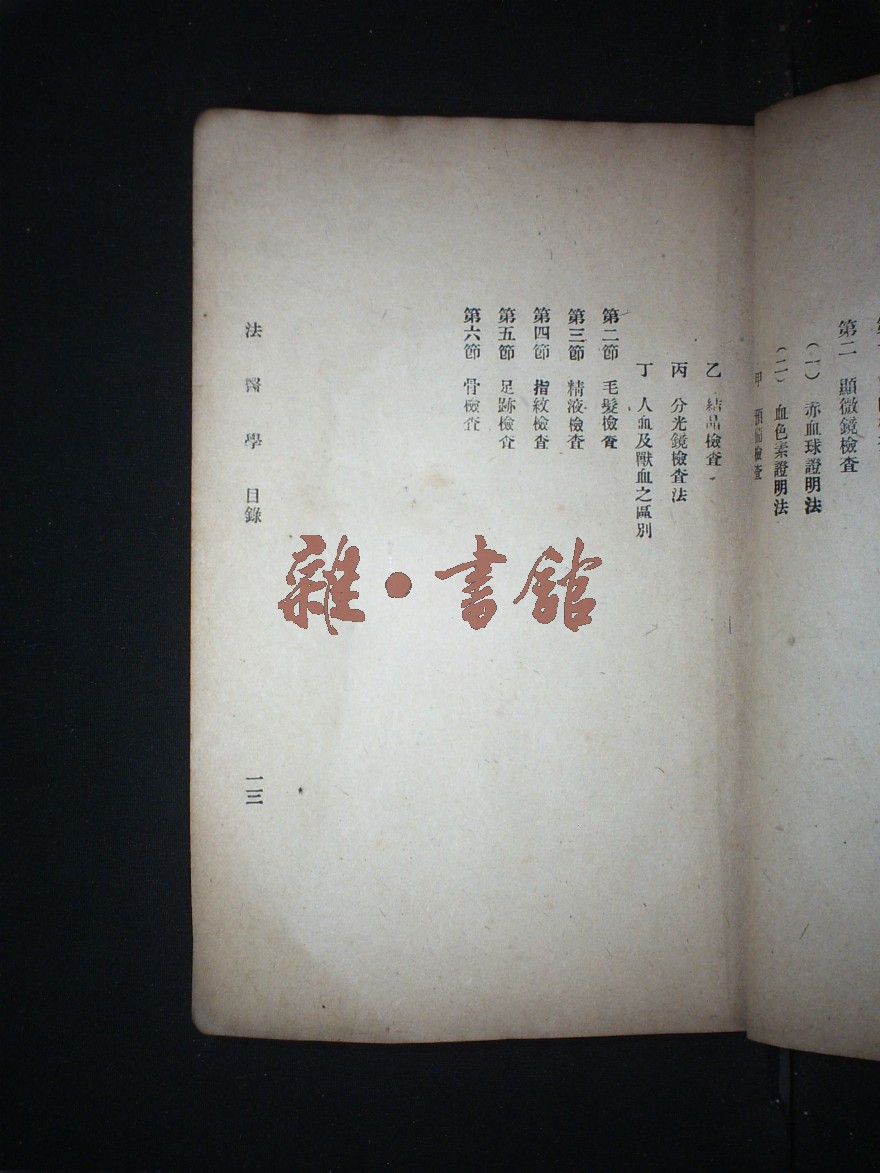 第二 顯微鏡檢査
(一) 赤血球證明法
(二) 血色素證明法
甲 預備檢査
乙 結晶檢査
丙 分光鏡檢査法
丁 人血及獸血之區別
第二節 毛髮檢査
第三節 精液檢査
第四節 指紋檢査
第五節 足跡檢査
第六節 骨檢査
法醫學 目錄
一三
雜·書館